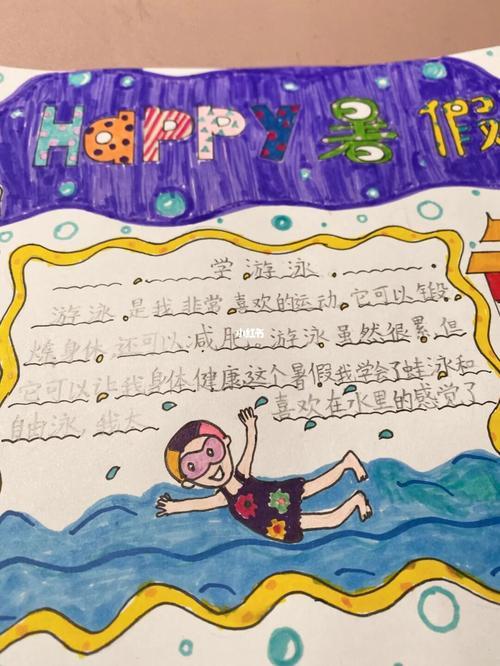 HAPPY 暑假
学游泳
游泳是我非常喜欢的运动,它可以锻
炼身体,还可以减肥。游泳虽然很累,但
它可以让我身体健康这个暑假我学会了蛙泳和
自由泳,我太 喜欢在水里的感觉了
小红书